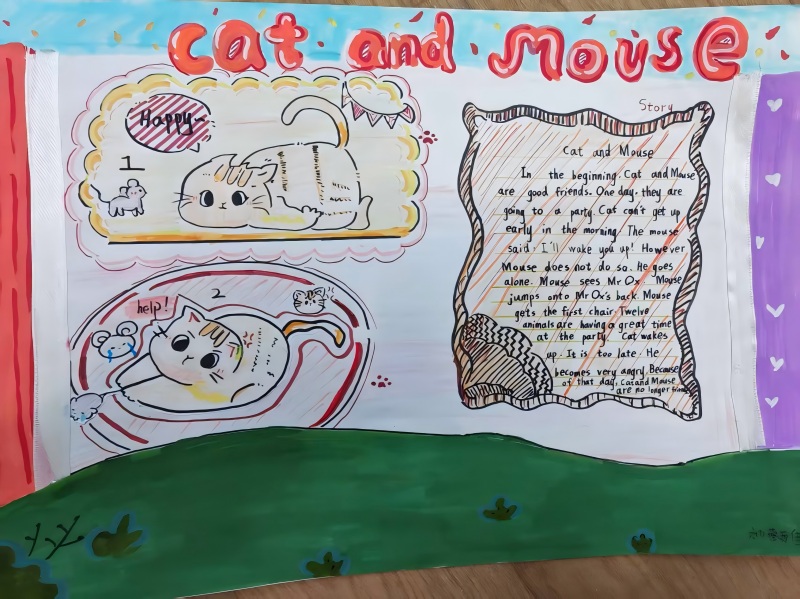 cat and Mouse
Happy~
1
2
help!
Story
Cat and Mouse
In the beginning. Cat and Mouse
are good friends. One day. they are
going to a party. Cat can't get up
early in the morning. The mouse
said: I'll wake you up! However
Mouse does not do so. He goes
alone. Mouse sees Mr Ox. Mouse
jumps onto Mr Ox's back. Mouse
gets the first chair. Twelve
animals are having a great time
at the party. Cat wakes
up. It is too late. He
becomes very angry. Because
of that day, Cat and Mouse
are no longer friends